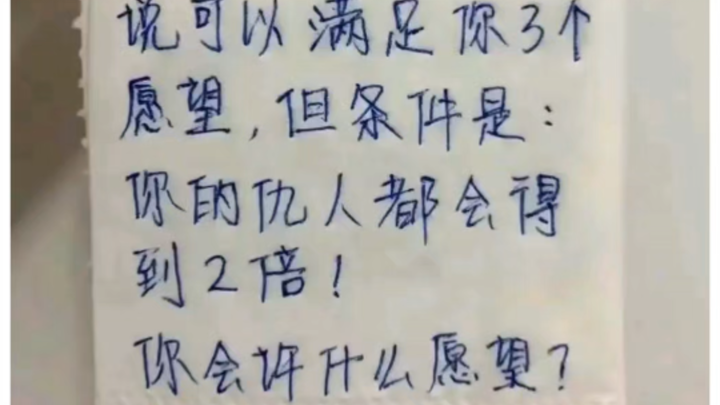 说可以满足你3个
愿望，但条件是：
你的仇人都会得
到2倍！
你会许什么愿望？